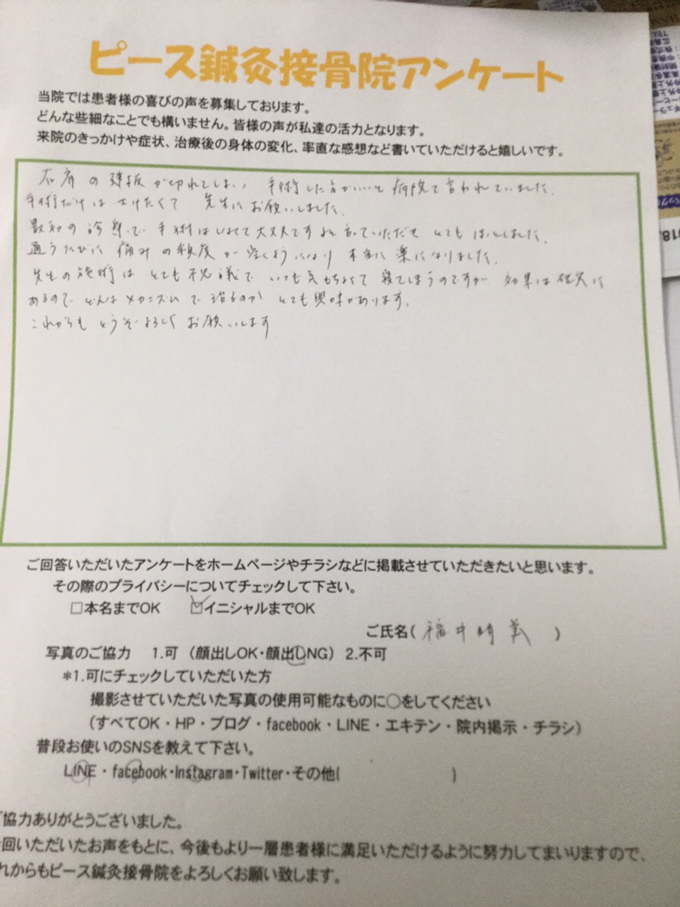 ピース鍼灸接骨院アンケート
当院では患者様の喜びの声を募集しております。
どんな些細なことでも構いません。皆様の声が私達の活力となります。
来院のきっかけや症状、治療後の身体の変化、率直な感想など書いていただけると嬉しいです。
右肩の腱板が切れてしまい 手術した方がいいと病院で言われていました。
手術だけはさけたくて 先生にお願いしました。
最初の診察で 手術はしなくて大丈夫ですよと言っていただきとてもほっとしました。
通うたびに 痛みの程度が軽くなり 本当に楽になりました。
先生の施術は とても不思議で いつも気もちよくて寝てしまうのですが 効果は確実に
あるので どんなメカニズムで治るのか とても興味があります。
これからも どうぞよろしく お願いします
ご回答いただいたアンケートをホームページやチラシなどに掲載させていただきたいと思います。
その際のプライバシーについてチェックして下さい。
□本名までOK ☑イニシャルまでOK
ご氏名( 福井 )
写真のご協力 1.可（顔出しOK・顔出しNG）2.不可
*1.可にチェックしていただいた方
撮影させていただいた写真の使用可能なものに○をしてください
（すべてOK・HP・ブログ・facebook・LINE・エキテン・院内掲示・チラシ）
普段お使いのSNSを教えて下さい。
LINE・facebook・Instagram・Twitter・その他( )
協力ありがとうございました。
回いただいたお声をもとに、今後もより一層患者様に満足いただけるように努力してまいりますので、
れからもピース鍼灸接骨院をよろしくお願い致します。